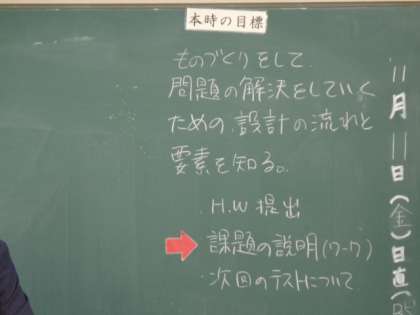 本時の目標
ものづくりをして
問題の解決をしていく
ための、設計の流れと
要素を知る。
・H.W 提出
課題の説明(ワーク)
・次回のテストについて
11月11日(金)日直(